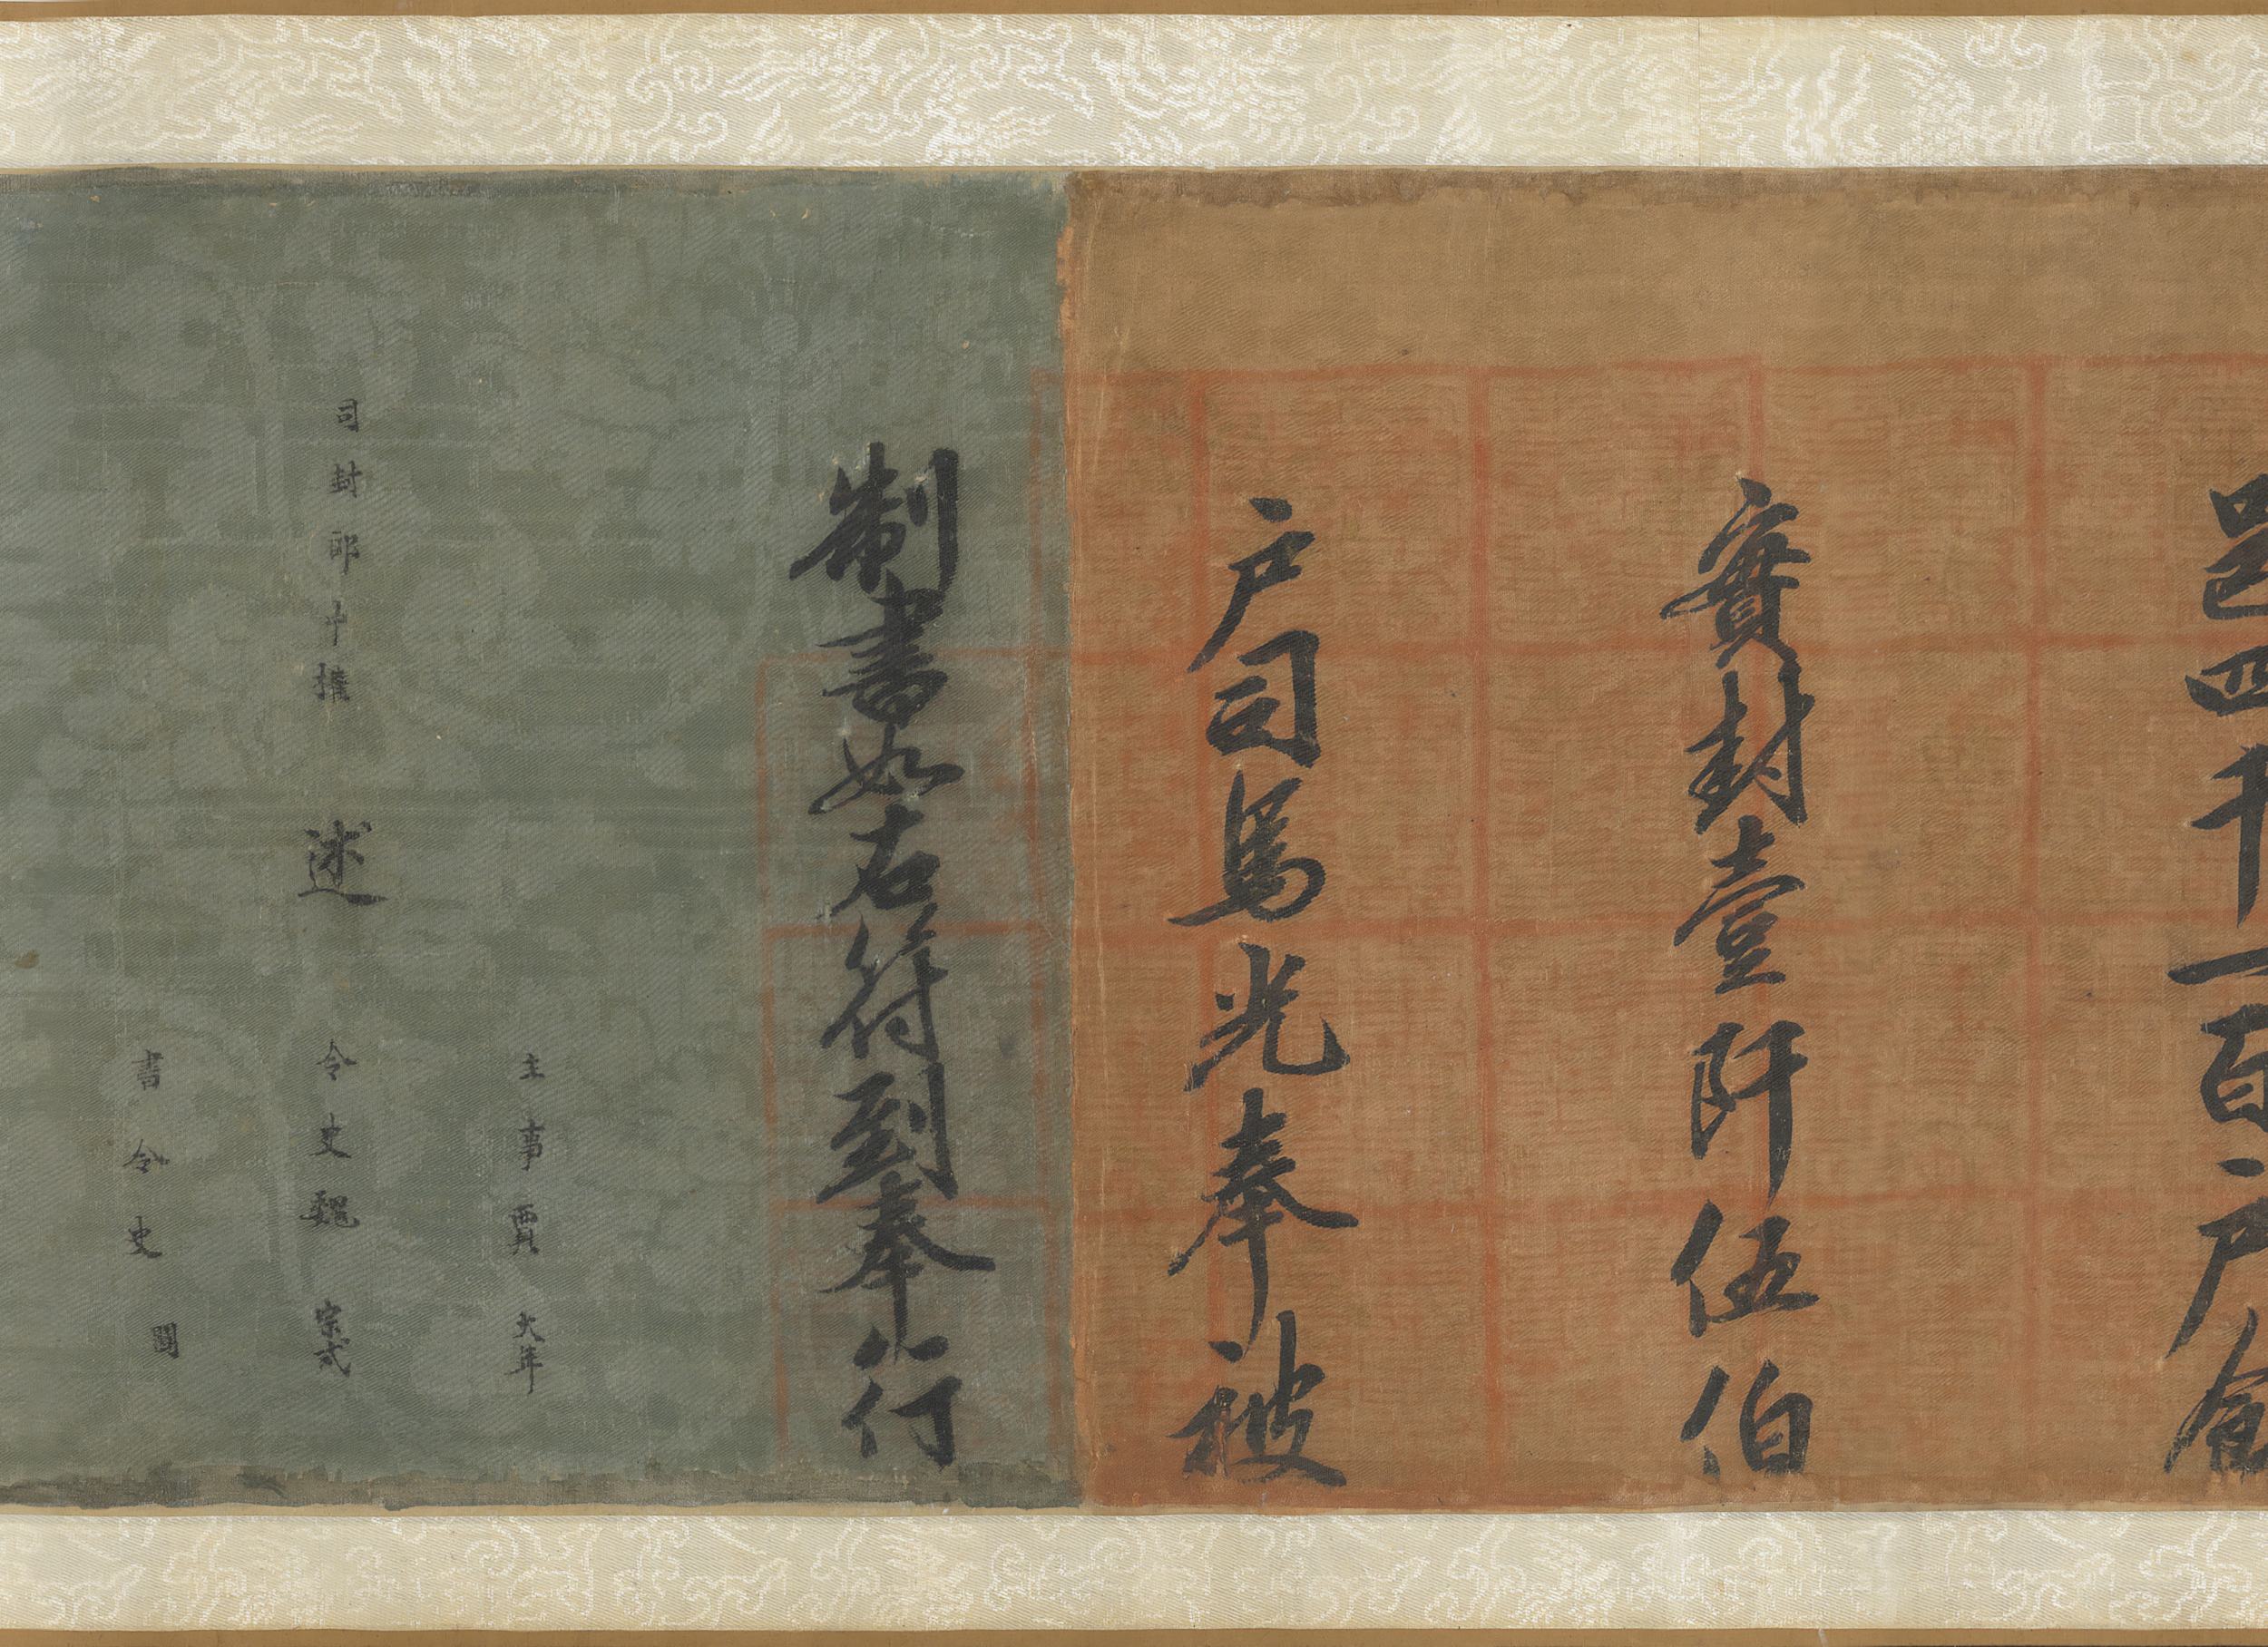 邑四千一百户食
實封壹阡伍伯
户司馬光奉被
制書如右符到奉行
主事賈 大年
司封郎中權 述 令史魏 宗式
書令史